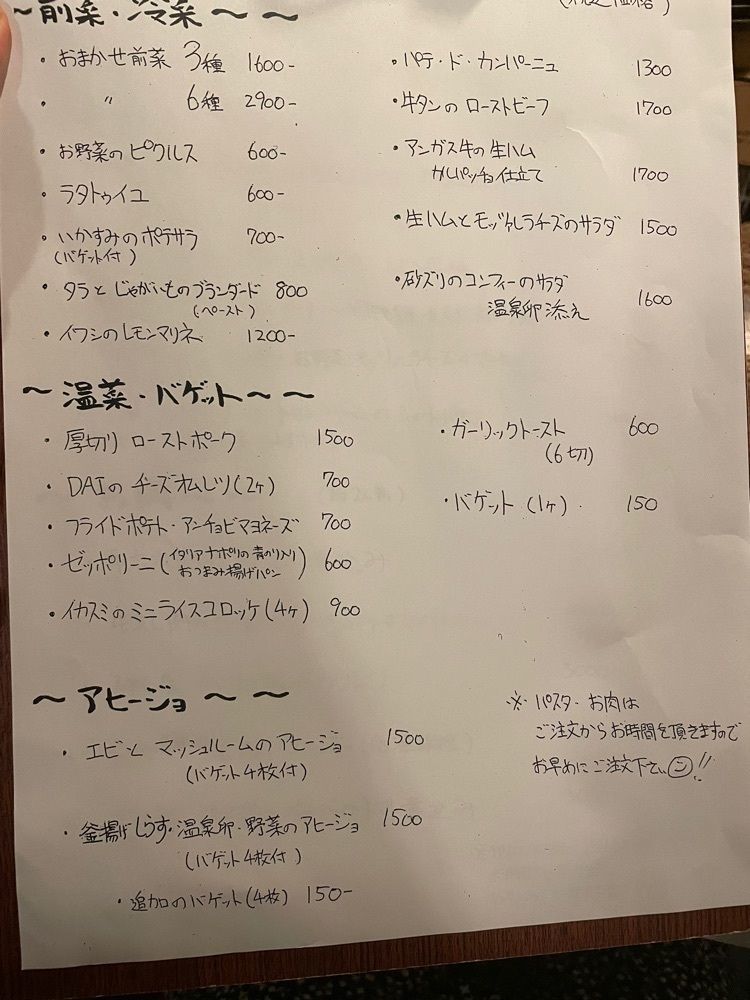 ~前菜・冷菜~ ~
・おまかせ前菜 3種 1600-
・ 〃 6種 2900-
・お野菜のピクルス 600-
・ラタトゥイユ 600-
・いかすみのポテサラ 700-
(バゲット付)
・タラとじゃがいものブランダード 800
(ペースト)
・イワシのレモンマリネ 1200-
・パテ・ド・カンパーニュ 1300
・牛タンのローストビーフ 1700
・アンガス牛の生ハム
カルパッチョ仕立て 1700
・生ハムとモッツァレラチーズのサラダ 1500
・砂ズリのコンフィーのサラダ
温泉卵添え 1600
~温菜・バゲット~ ~
・厚切りローストポーク 1500
・DAIのチーズオムレツ(2ヶ) 700
・フライドポテト・アンチョビマヨネーズ 700
・ゼッポリーニ(イタリアナポリの青のり入り
おつまみ揚げパン) 600
・イカスミのミニライスコロッケ(4ヶ) 900
・ガーリックトースト 600
(6切)
・バゲット(1ヶ). 150
~アヒージョ~ ~
・エビとマッシュルームのアヒージョ 1500
(バゲット4枚付)
・釜揚げしらす・温泉卵・野菜のアヒージョ 1500
(バゲット4枚付)
・追加のバゲット(4枚) 150-
※パスタ・お肉は
ご注文からお時間を頂きますので
お早めにご注文下さい!!